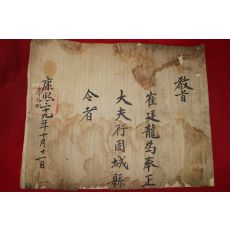 敎旨
崔廷龍爲奉正
大夫行固城縣
令者
康熙二十九年十月十一日